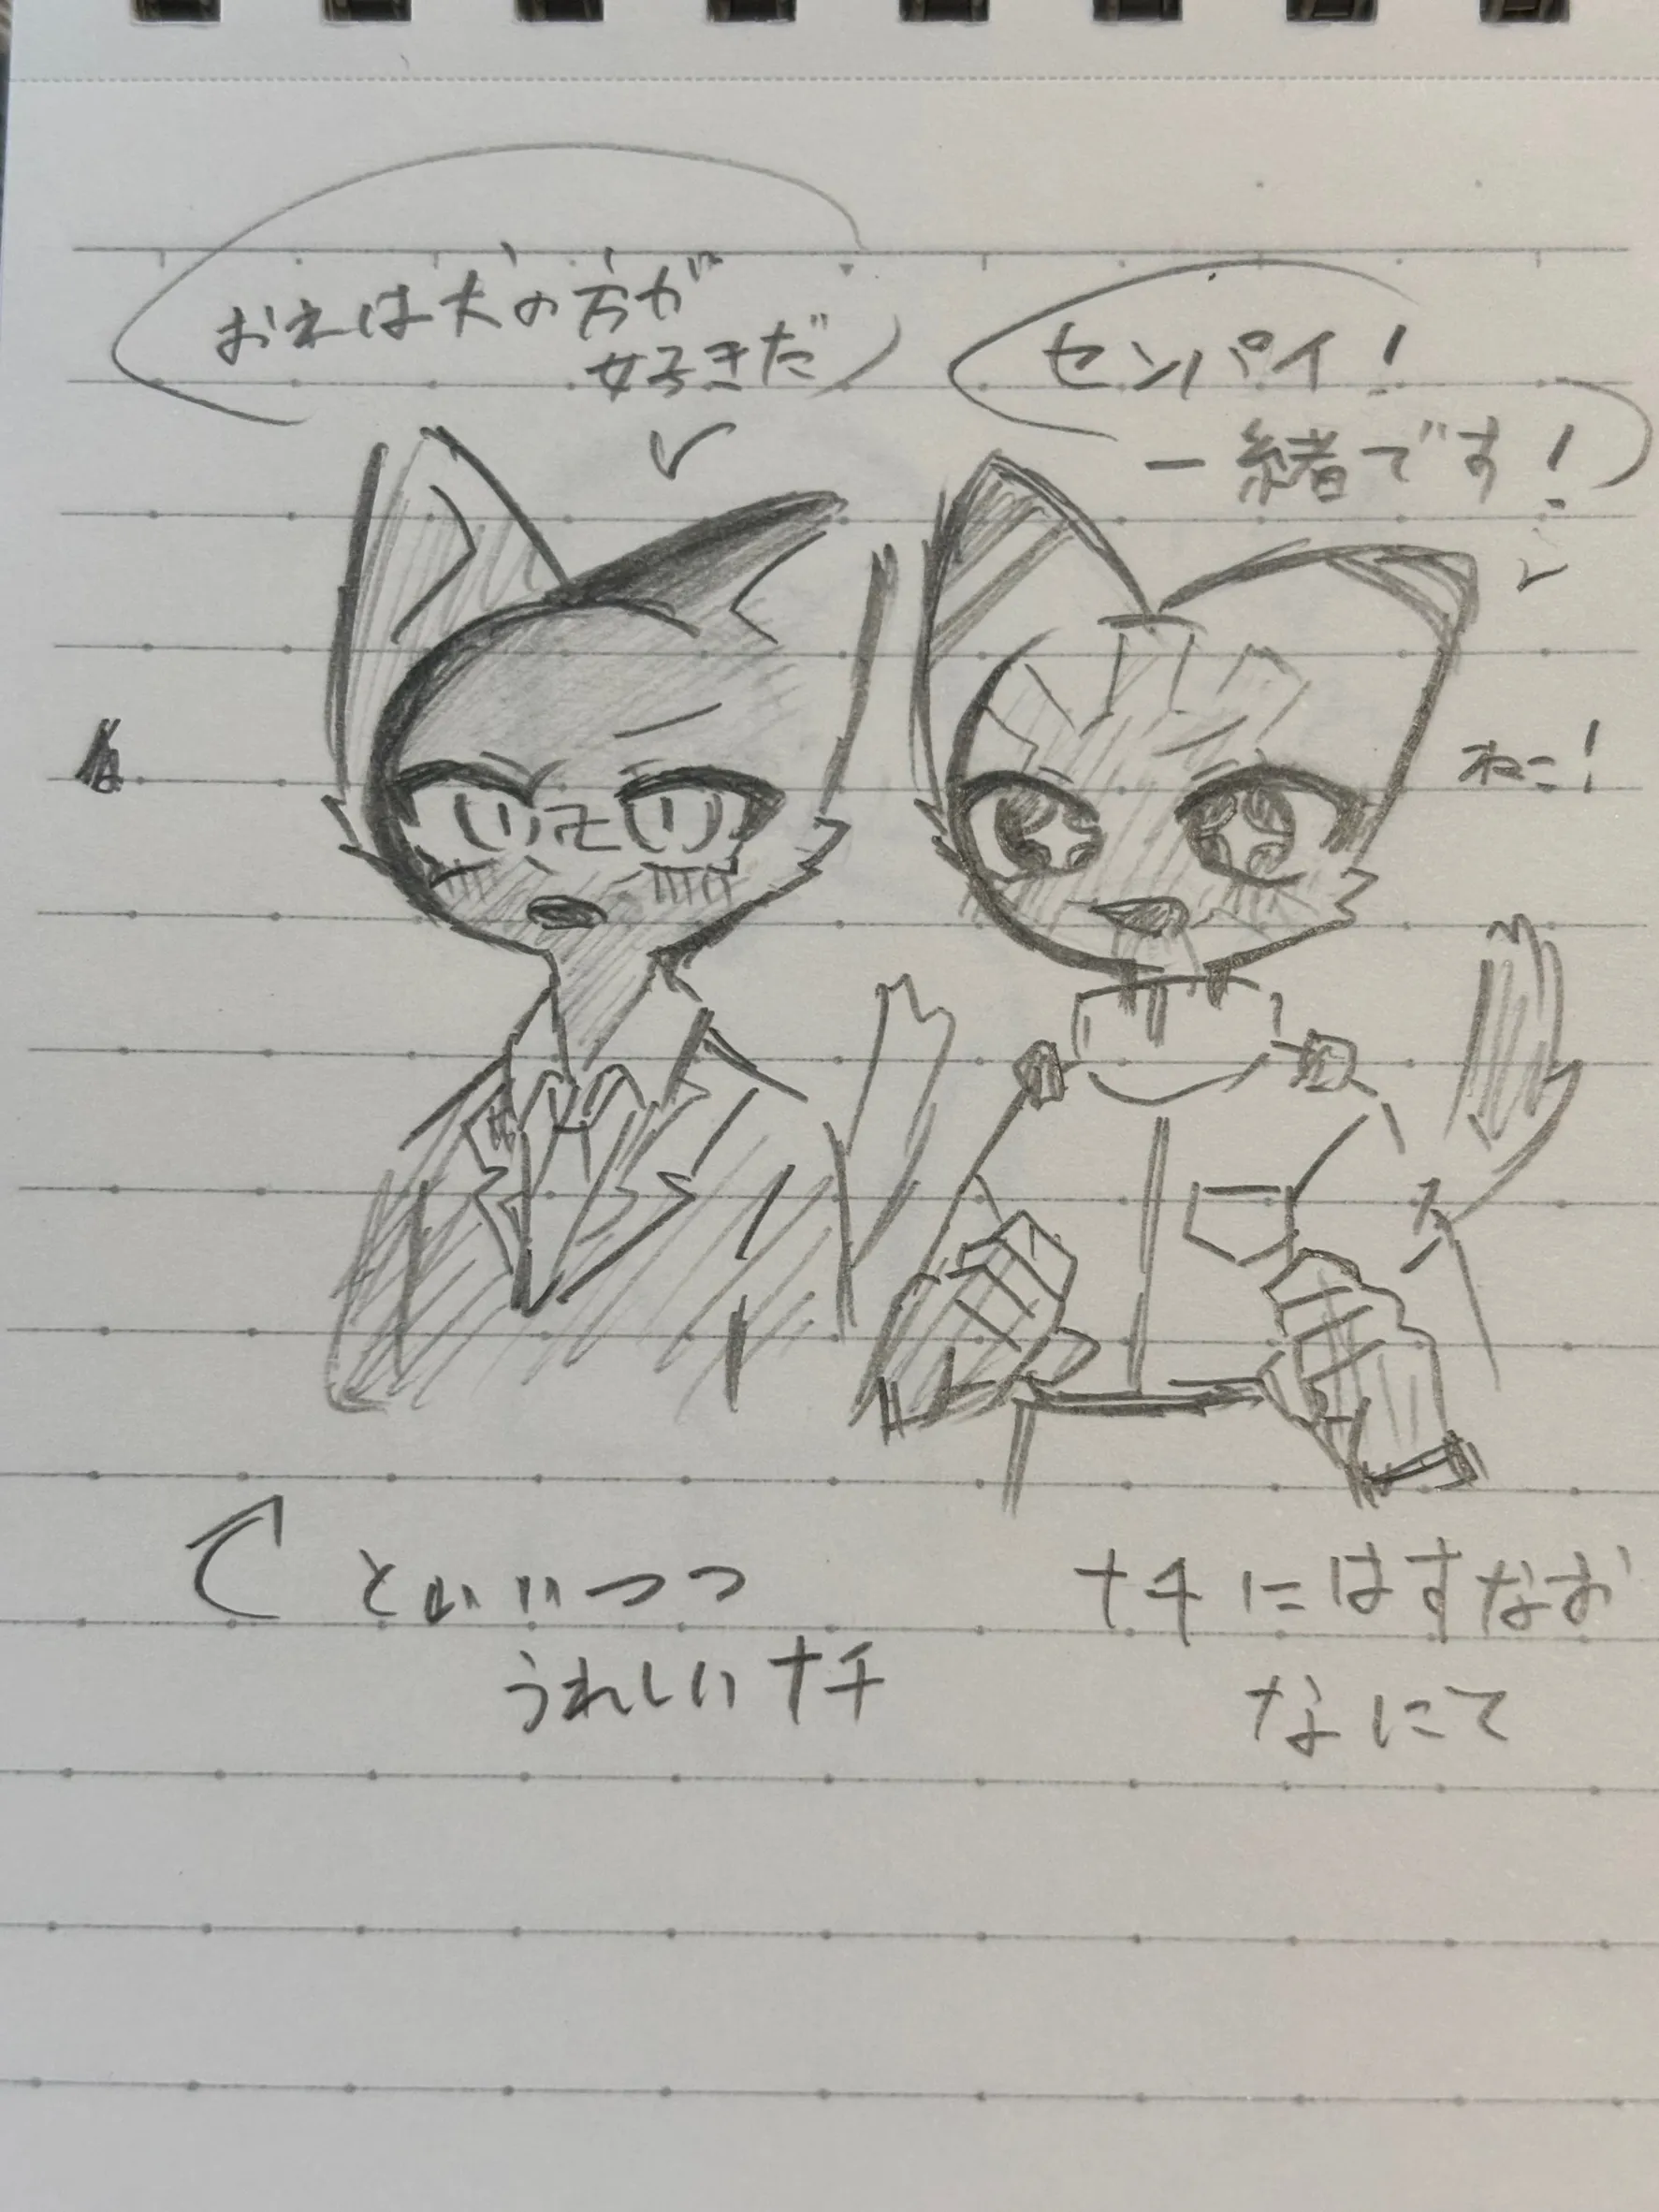 おれは犬の方が
好きだ
センパイ!
一緒です!
ねこ!
といいつつ
うれしいナチ
ナチにはすなお
なにて